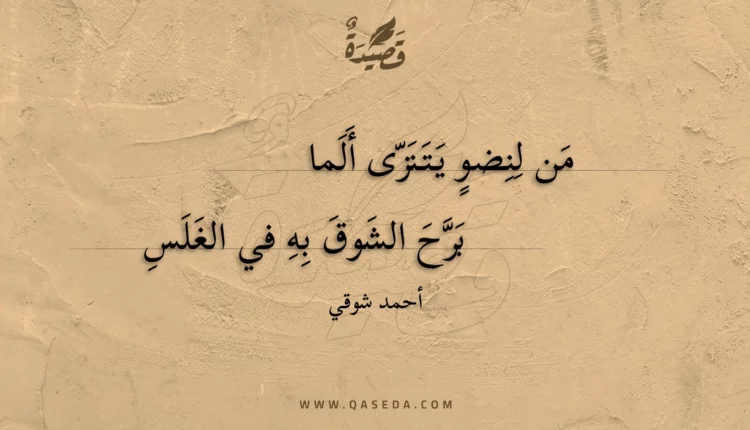 قَصِيدَةٌ
مَن لِنِضوٍ يَتَنَزّى أَلَما
بَرَّحَ الشَوقَ بِهِ في الغَلَسِ
أحمد شوقي
WWW.QASEDA.COM